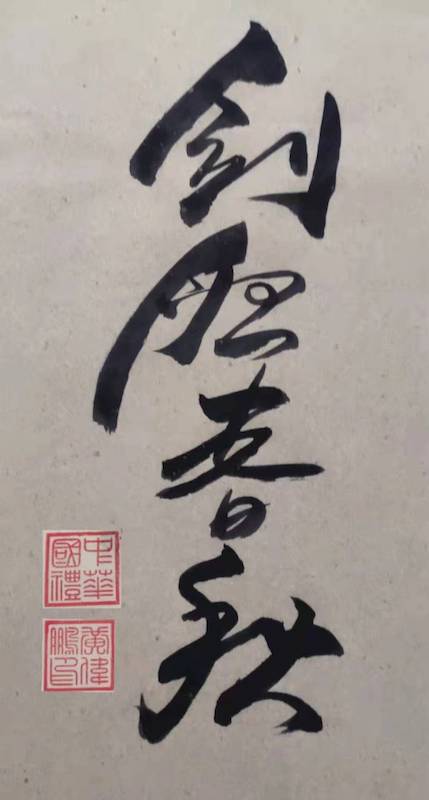 剑胆春秋
中華國禮
黄偉鵬印